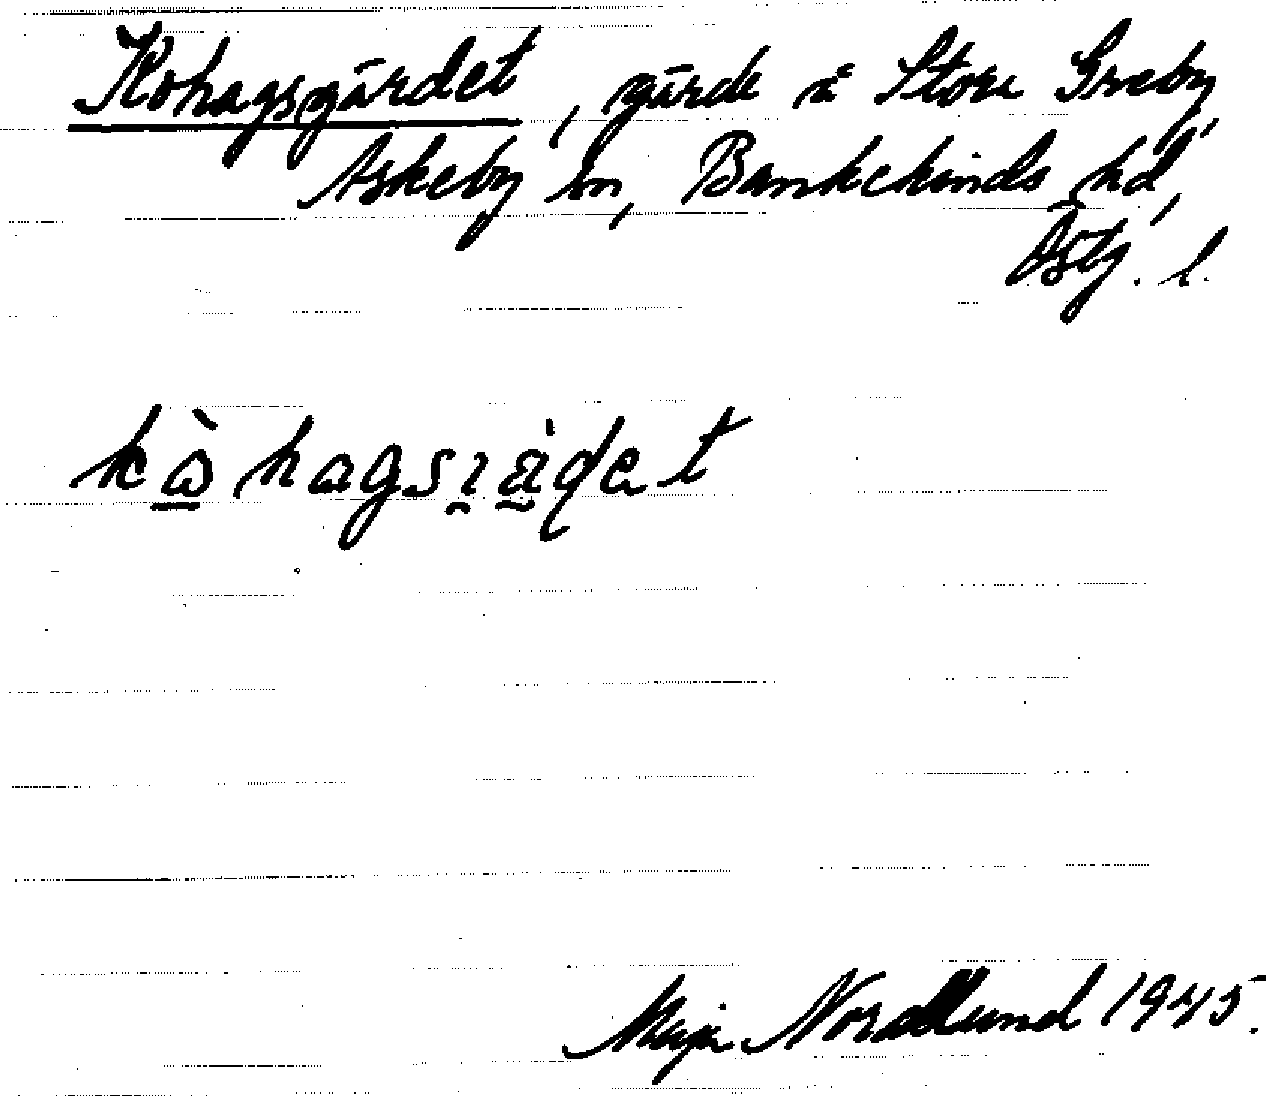 Kohagsgärdet, gärde å Stora Greby,
Askeby sn, Bankekinds hd,
Östg. l.
kò̱hagsı̰ä̀ḍet
Maja Nordlund 1945.